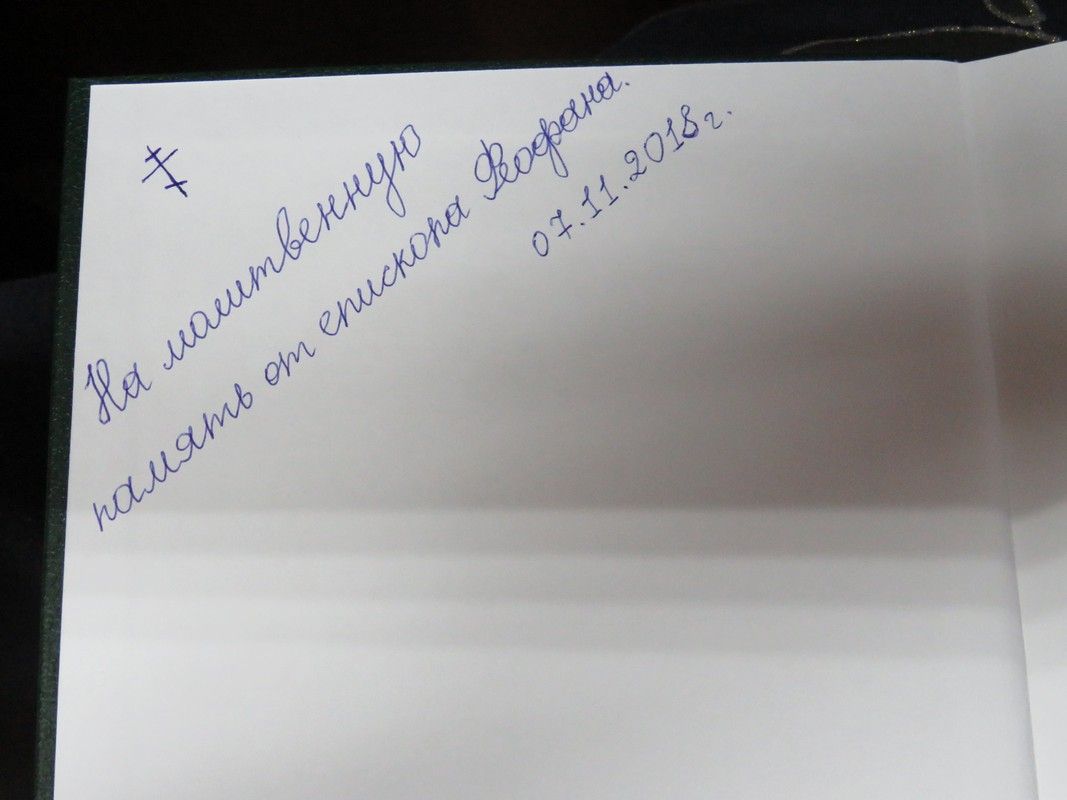 На молитвенную
память от епископа Феофана.
07.11.2018г.